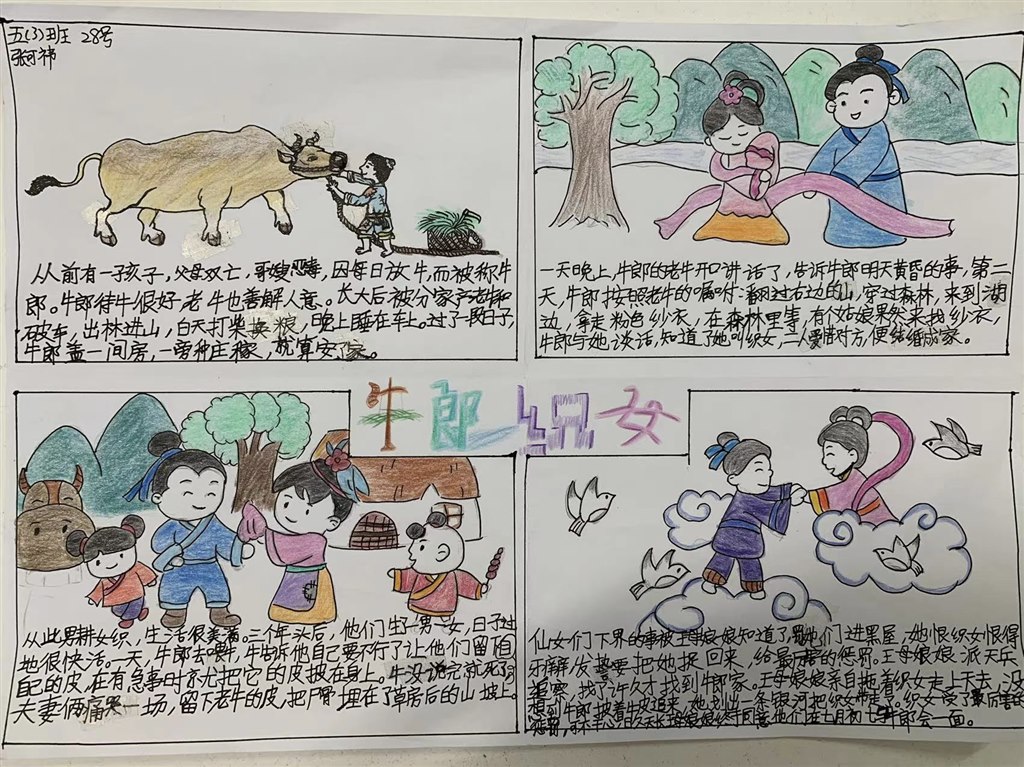 五(3)班 28号
张可祎
从前有一子孩子，父母双亡，哥嫂恶毒，因每日放牛，而被称牛
郎。牛郎待牛很好，老牛也善解人意。长大后被分家产老牛和
破车，出林进山，白天打柴换粮，晚上睡在车上。过了一段日子，
牛郎盖一间房，一旁种庄稼，就算安了家。
一天晚上，牛郎的老牛开口讲话了，告诉牛郎明天黄昏的事，第二
天，牛郎按照老牛的嘱咐：翻过右边的山，穿过森林，来到湖
边，拿走粉色纱衣，在森林里等，有个姑娘果然来找纱衣，
牛郎与她谈话，知道了她叫织女，二人爱惜对方，便结婚成家。
牛郎织女
从此男耕女织，生活很美满。三个年头后，他们生了一男一女，日子过
地很快活。一天，牛郎去喂牛，牛告诉他自己要不行了让他们留下自
己的皮，在有急事时就把它的皮披在身上。牛没说完就死了
夫妻俩痛哭一场，留下老牛的皮，把尸骨埋在了草房后的山坡上。
仙女们下界的事被王母娘娘知道了，她们进黑屋，她恨织女恨得
牙痒发誓要把她捉回来，给最厉害的惩罚。王母娘娘派天兵
巡察，找了许久才找到牛郎家。王母娘娘亲自拖着织女走上天去，没
想到牛郎披着牛皮追来，她划出一条银河把织女带走。织女受了最厉害的
惩罚，日久天长王母娘娘终于同意他们在七月初七牛郎会一面。